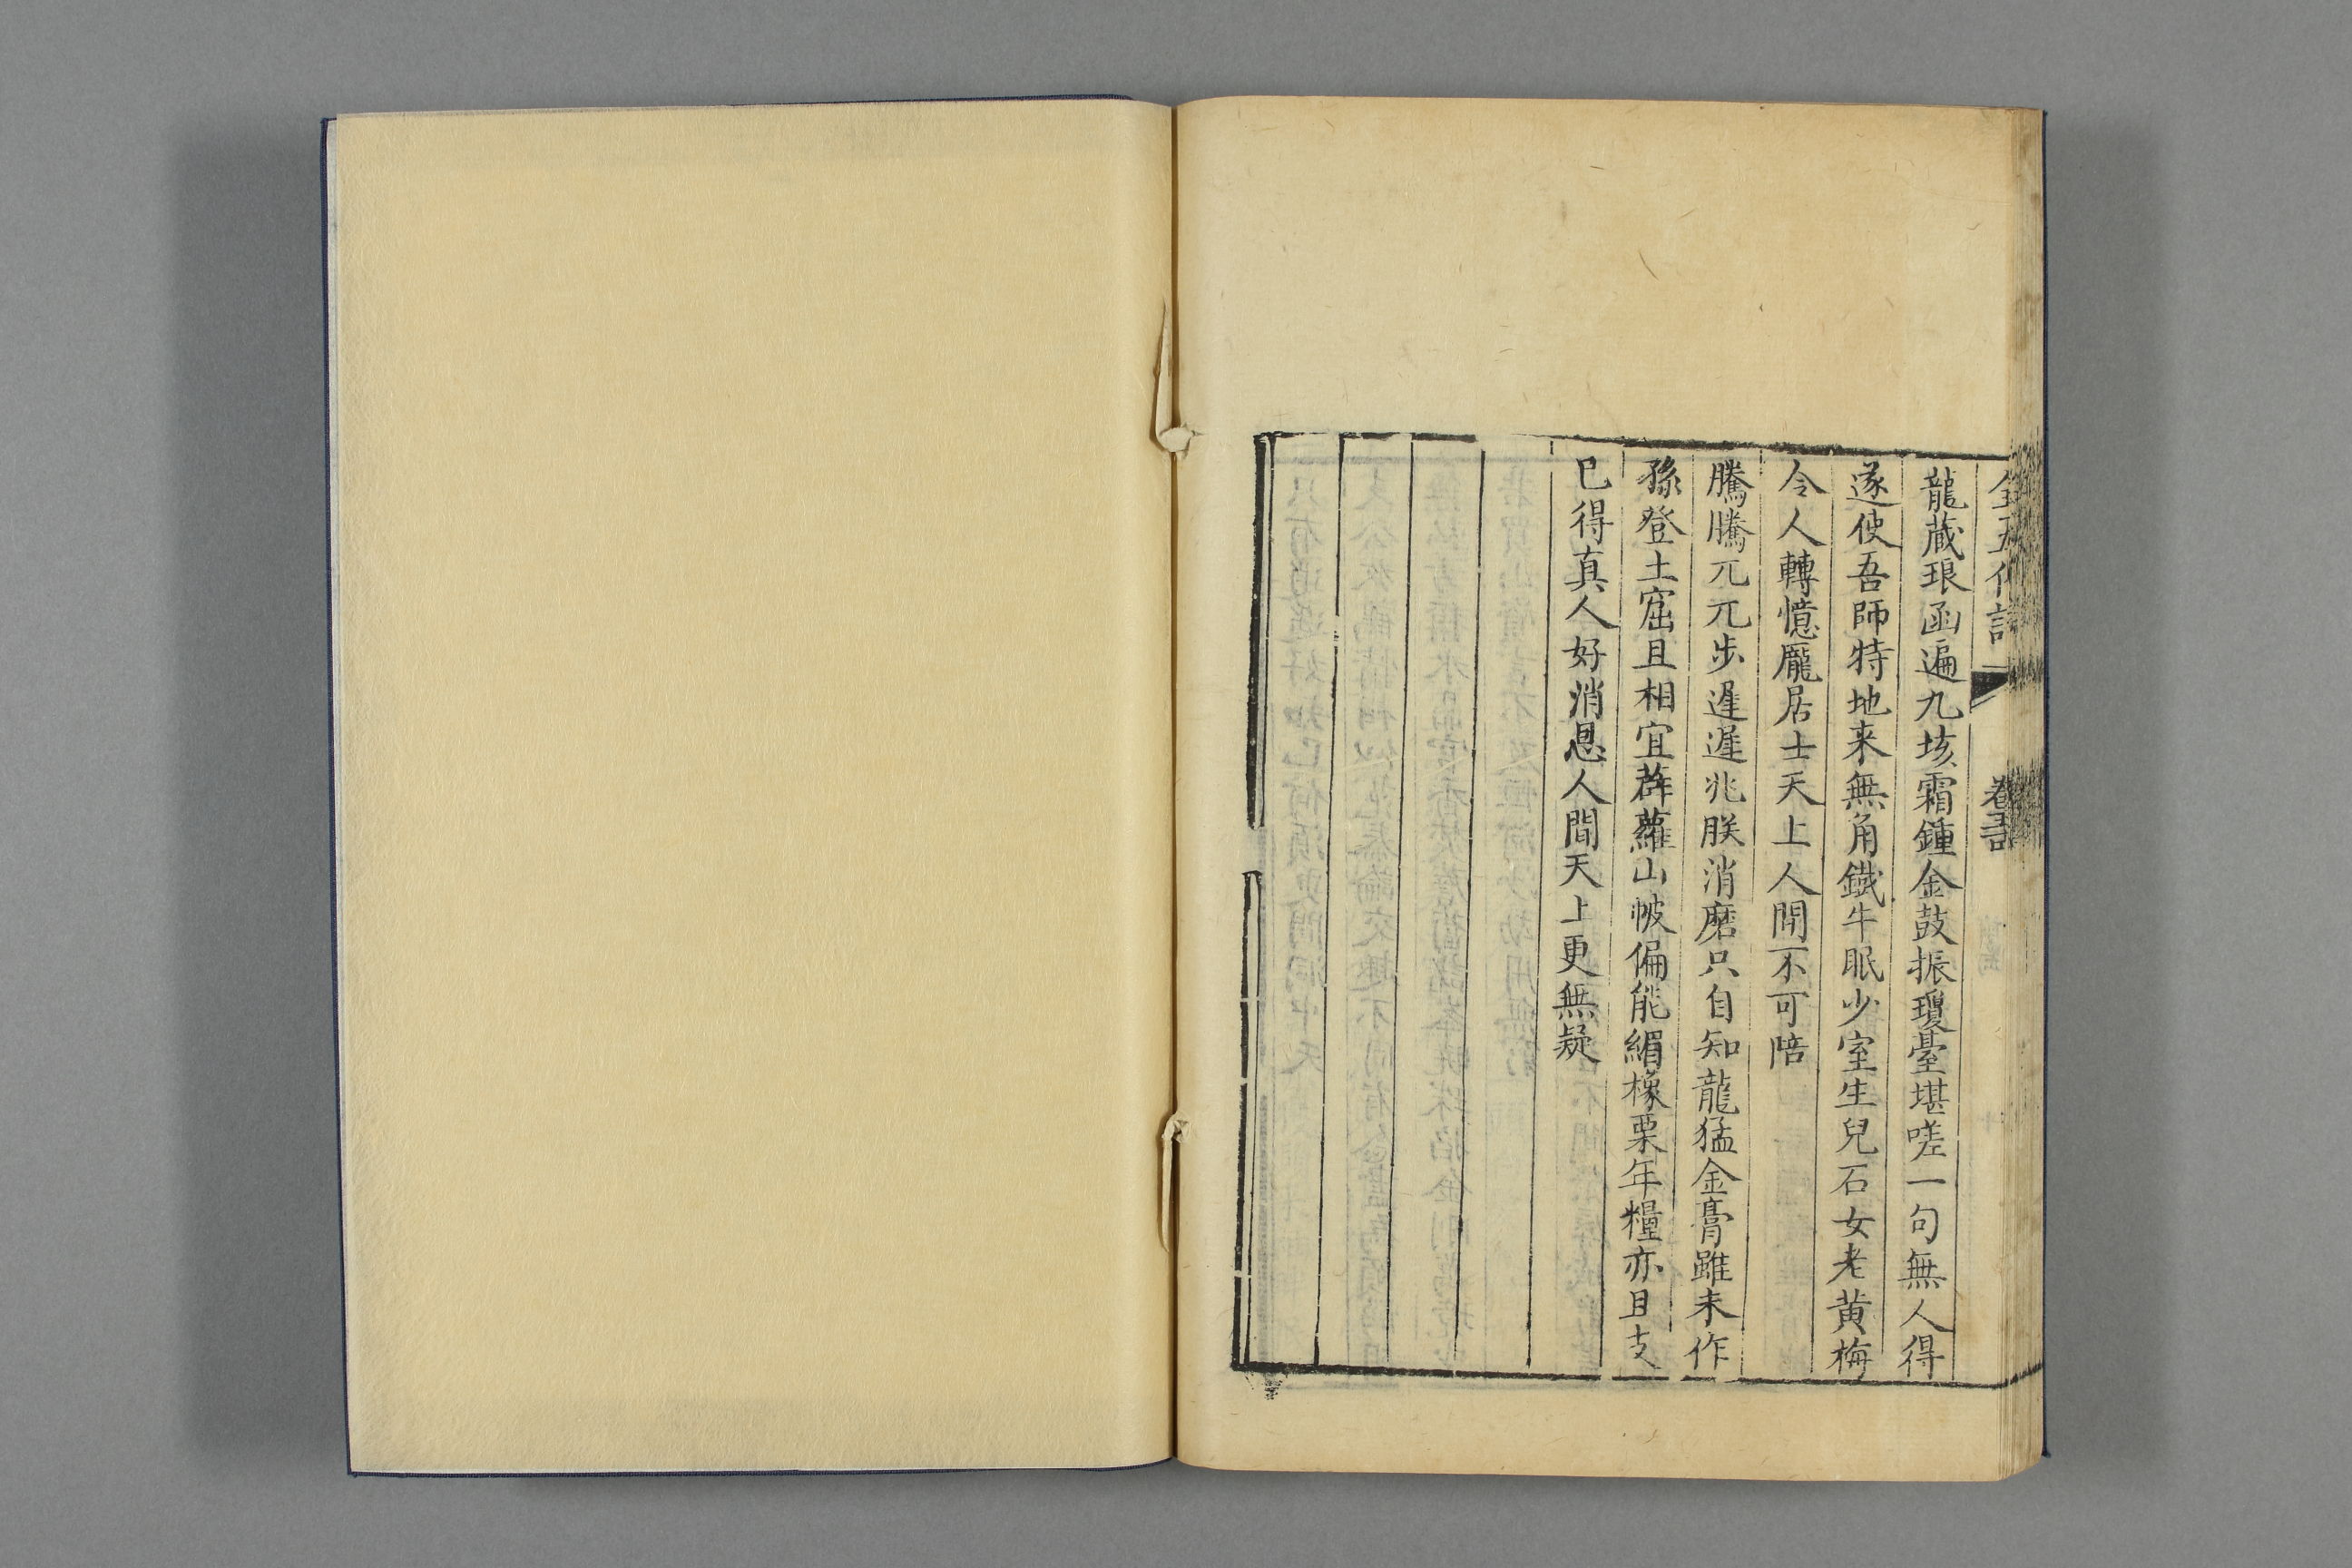 龍蔵琅函遍九垓霜鍾金鼓振瓊臺堪嗟一句無人得
遂使吾師特地来無角鐡牛眠少室生兒石女老黄梅
令人轉憶龐居士天上人間不可陪
騰騰兀兀步遅遅兆朕消磨只自知龍猛金膏雖未作
孫登土窟且相宜薜蘿山帔偏能緝橡栗年糧亦且支
已得真人好消息人間天上更無疑